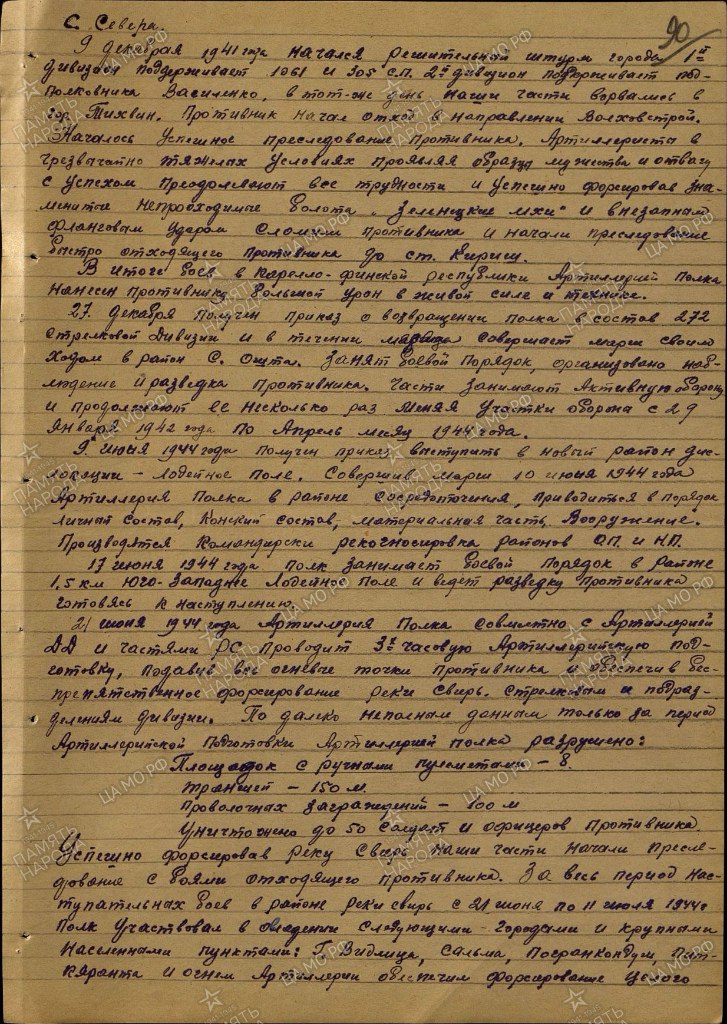 90
С. Севера.
9 декабря 1941 года начался решительный штурм города 1й
дивизион поддерживает 1061 и 305 с.п. 2й дивизион поддерживает под-
полковника Василенко, в тот-же день наши части ворвались в
гор. Тихвин. Противник начал отход в направлении Волховстрой.
Началось успешное преследование противника. Артиллеристы в
чрезвычатно тяжелых условиях проявляя образцы мужества и отваги
с успехом преодолевают все трудности и успешно форсировав зна-
менитые непроходимые болота „Зеленецкие мхи" и внезапным
фланговым ударом сломили противника и начали преследование
быстро отходящего противника до ст. Кириши.
В итоге боев в Карелло-финской республики Артиллерией полка
нанесен противнику большой урон в живой силе и технике.
27 декабря получен приказ о возвращении полка в состав 272
стрелковой дивизии и в течении месяца совершает марш своим
ходом в район с. Ошта. Занят боевой порядок, организовано наб-
людение и разведка противника. Части занимают активную оборону
и продолжают её несколько раз меняя участки оборона с 29
января 1942 года по Апрель месяц 1944 года.
9 июня 1944 года получен приказ выступить в новый район дис-
локации – Лодейное поле. Совершив марш 10 июня 1944 года
Артиллерия Полка в районе сосредоточения, приводиться в порядок
личный состав, конский состав, материальная часть, вооружение.
Производятся командирски рекогносировка районов О.П. и Н.П.
17 июня 1944 года полк занимает боевой порядок в районе
1,5 км юго-западнее Лодейное поле и ведет разведку противника
готовясь к наступлению.
21 июня 1944 года Артиллерия Полка совместно с Артиллерией
ДД и частями РС проводит 3х часовую Артиллерийскую под-
готовку, подавив все огневые точки противника обеспечив бес-
препятственное форсирование реки Свирь. стрелковым и подраз-
делениям дивизии. По далеко неполным данным только за период
Артиллерийской подготовки Артиллерией полка разрушено:
Площадок с ручными пулеметами – 8.
траншей – 150 м.
проволочных заграждений – 100 м
Уничтожено до 50 солдат и офицеров противника.
Успешно форсировав реку Свирь наши части начали пресле-
дование с боями отходящего противника. За весь период нас-
тупательных боев в районе реки свирь с 21 июня по 11 июля 1944г
полк участвовал в овладении следующими городами и крупными
населенными пунктами: Г. Видлица, Сальма, Погранкондуши, Пит-
кяранта и огнем Артиллерии обеспечил форсирование целого